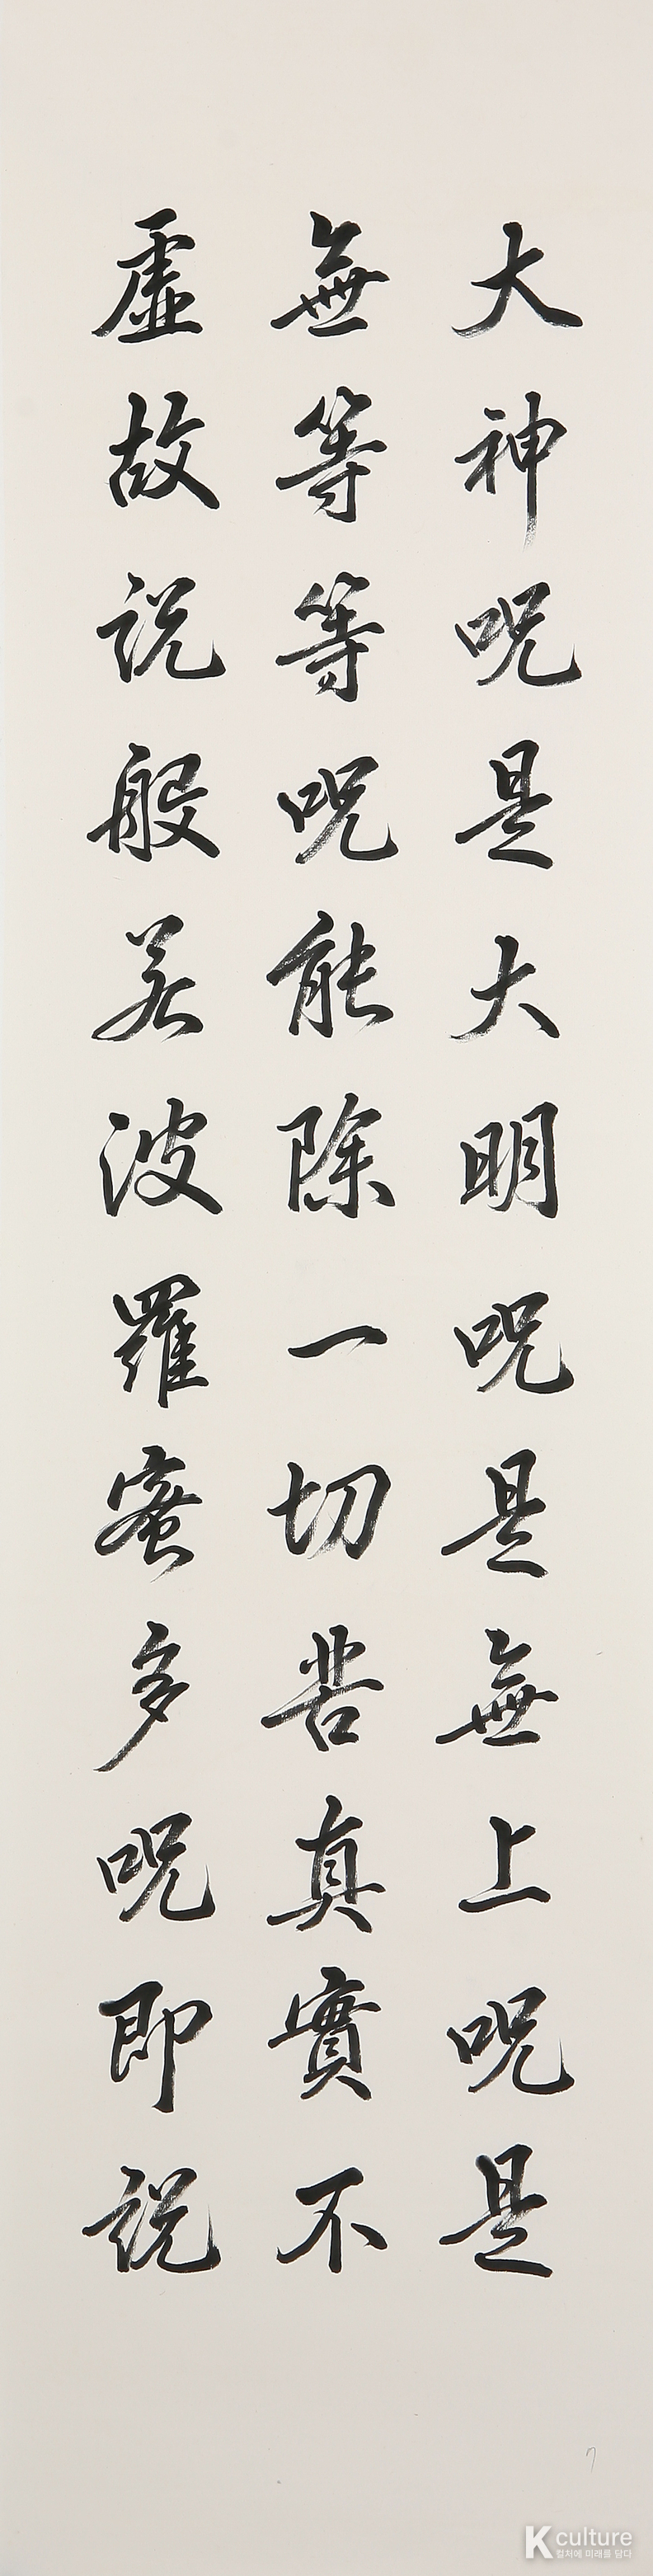 大神呪是大明呪是無上呪是
無等等呪能除一切苦真實不
虛故說般若波羅蜜多呪即說
7
K culture
컬처에 미래를 담다